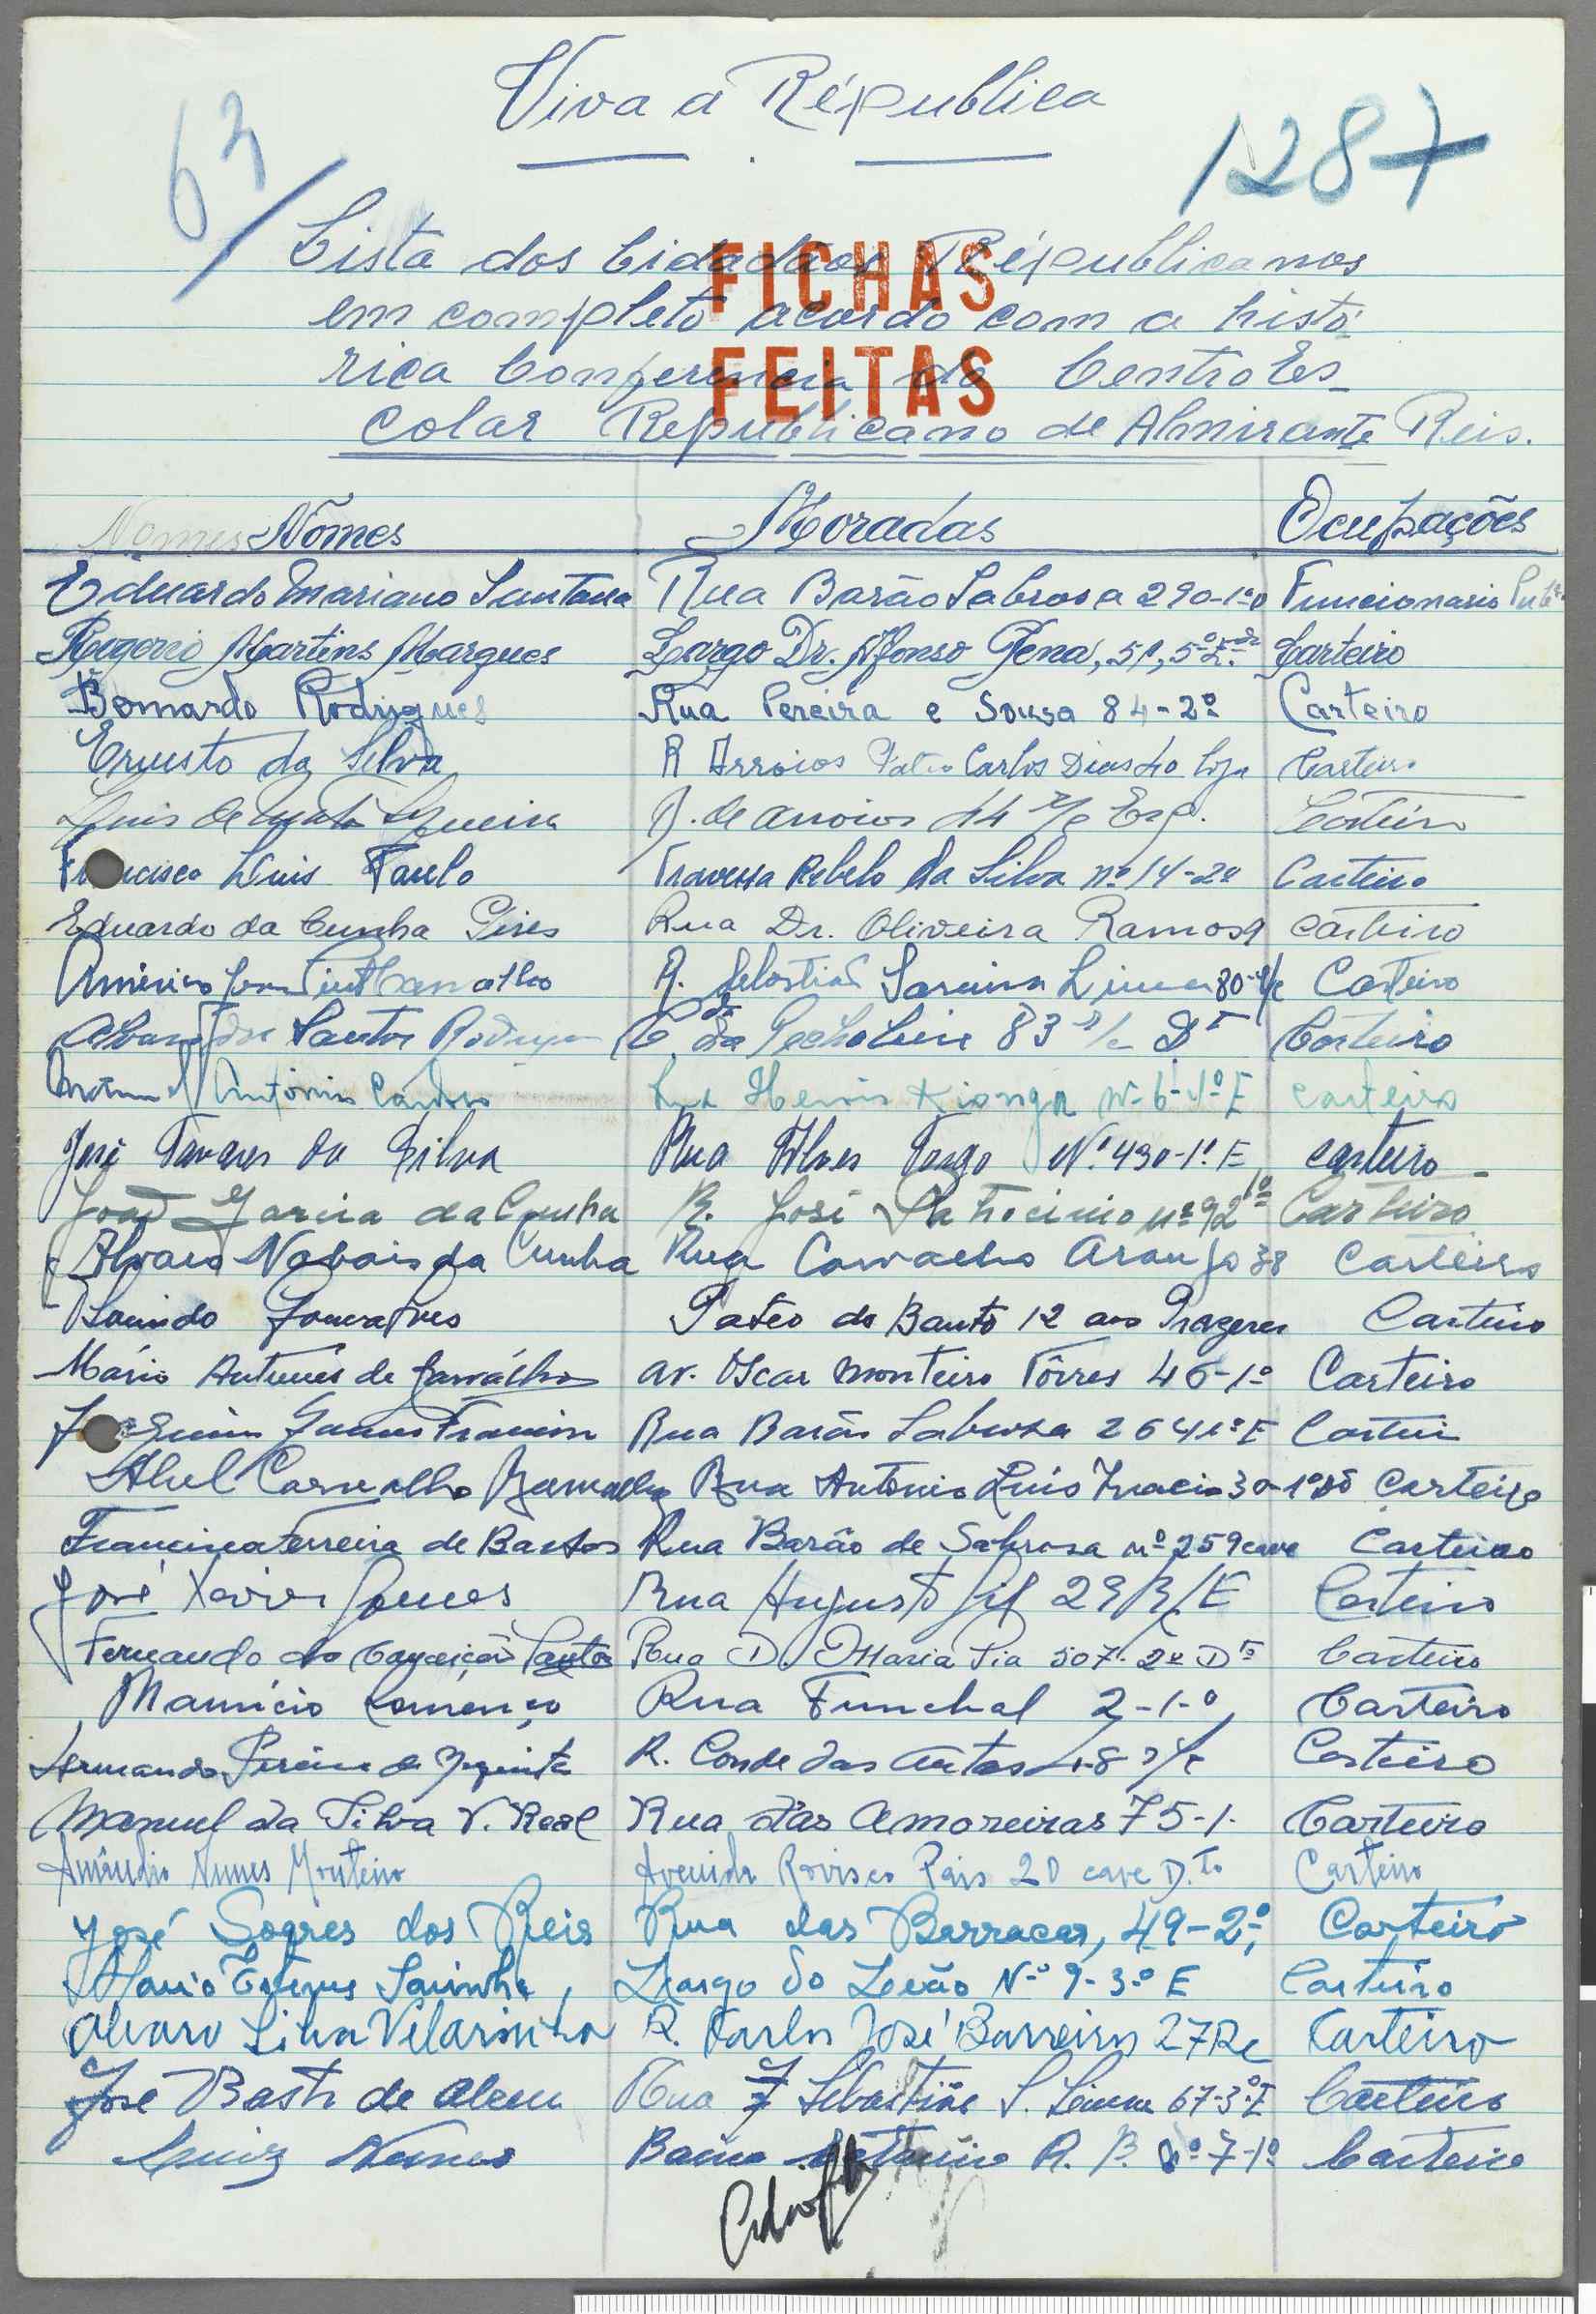 Viva a Républica
63
1287
Lista dos Cidadãos Républicanos
FICHAS
em completo acordo com a histó
rica Conferencia do Centro Es_
FEITAS
colar Republicano de Almirante Reis.
Nomes Nômes Moradas Ocupações
Eduardo Mariano Santana Rua Barão Sabrosa 290-1º D Funcionario
Rogerio Martins Marques Largo Dr. Afonso Pena, 5º Carteiro
Bernardo Rodrigues Rua Pereira e Sousa 84-2º Carteiro
Ernesto da Silva R Arroios Pateo Carlos Dias 40 loja Carteiro
Luis de Siqueira R. de Arroios 44 r/c Esq. Carteiro
Francisco Luis Paulo Travessa Rebelo da Silva nº 14-2º Carteiro
Eduardo da Cunha Pires Rua Dr. Oliveira Ramos 9 carteiro
Américo Carvalho R. Sebastião Saraiva Lima 80-r/c Carteiro
Santos Rodrigues 83 r/c Dt Carteiro
António Cardoso Rua Herois Kionga Nº 6-1º E carteiro
José Tavares da Silva Rua Nº 430-1º E carteiro
João Garcia da Cunha R. José Patrocinio nº 92 1º Carteiro
Alvaro Nabais da Cunha Rua Carvalho Araujo 38 Carteiro
Gonçalves Pateo do Bauto 12 aos Prazeres Carteiro
Mário Antunes de Carvalho Av. Oscar Monteiro Tôrres 46-1º Carteiro
Joaquim Rua Barão Sabrosa 264 1º E Carteiro
Abel Carvalho Rua Antonio Luis Inacio 30-1º Carteiro
Ferreira de Bastos Rua Barão de Sabrosa nº 259 cave Carteiro
José Xavier Gomes Rua Augusto Gil 29 R/E Carteiro
Fernando da Conceição Santos Rua D. Maria Pia 507. 2º Dto Carteiro
Mauricio Lourenço Rua Funchal 2-1.º Carteiro
Armando Pereira R. Conde das Antas 48 r/c Carteiro
Manuel da Silva V. Real Rua das Amoreiras 75-1. Carteiro
Nunes Monteiro Avenida Rovisco Pais 20 cave D.to Carteiro
José Soares dos Reis Rua das Barracas, 49-2.º Carteiro
Mario Esteves Sarinha, Largo do Leão N.º 9-3.º E Carteiro
Alvaro Silva Vilarinho R. Carlos José Barreiros 27 Rc Carteiro
José de Abreu Rua Sebastião S. Lima 67-3º E Carteiro
Luiz Nunes R. B. nº 7-1º Carteiro